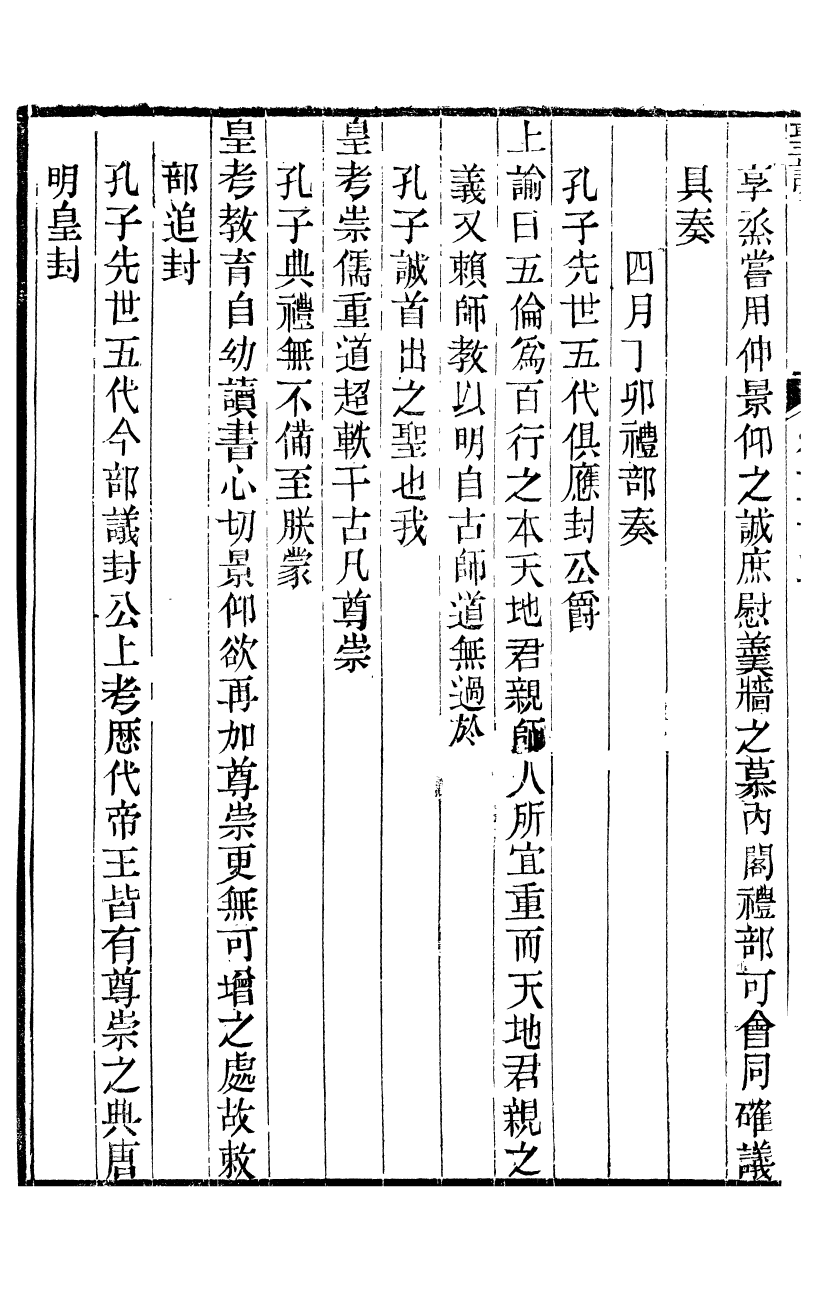 享烝嘗用伸景仰之誠庶慰羹牆之慕內閣禮部可會同確議
具奏
四月丁卯禮部奏
孔子先世五代俱應封公爵
上諭曰五倫爲百行之本天地君親師人所宜重而天地君親之
義又賴師教以明自古師道無過於
孔子誠首出之聖也我
皇考崇儒重道超軼千古凡尊崇
孔子典禮無不備至朕蒙
皇考教育自幼讀書心切景仰欲再加尊崇更無可增之處故敕
部追封
孔子先世五代今部議封公上考歷代帝王皆有尊崇之典唐
明皇封